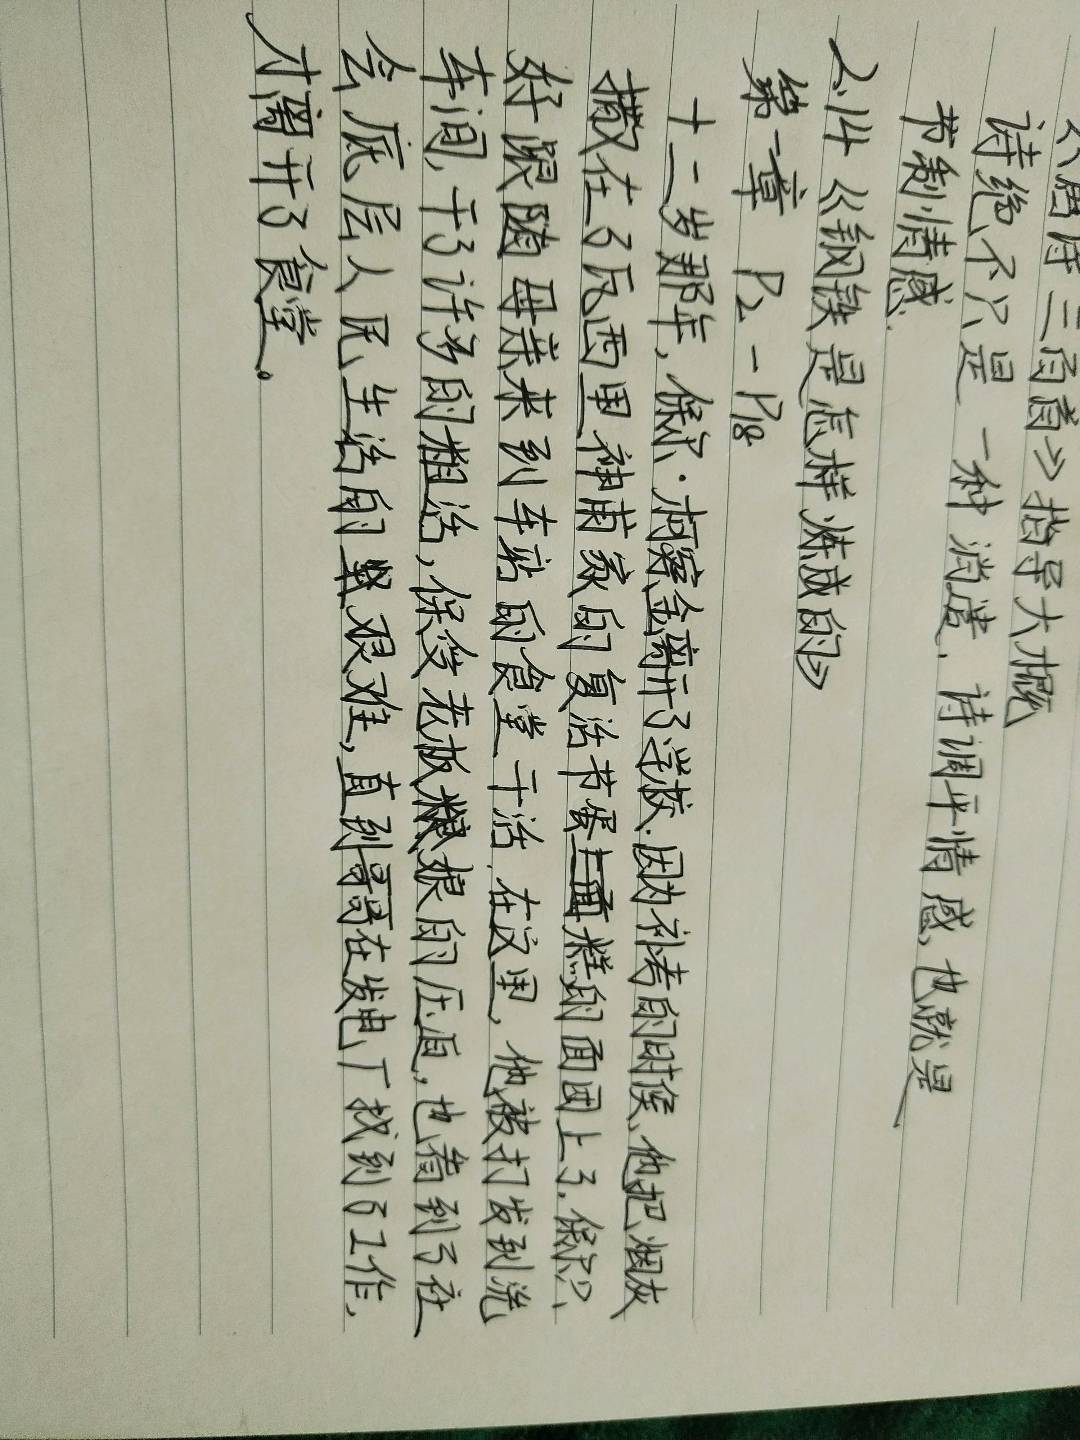 《唐诗三百首》指导大概
诗绝不只是一种消遣，诗调平情感，也就是
节制情感.
2.14《钢铁是怎样炼成的》
第一章 P2-P18
十二岁那年，保尔·柯察金离开了学校.因为补考的时候，他把烟灰
撒在了瓦西里神甫家的复活节蛋面糕的面团上了.保尔只
好跟随母亲来到车站的食堂干活.在这里，他被打发到洗
车间，干了许多的粗活，保受老板娘的压迫，也看到了社
会底层人民生活的艰难，直到哥哥在发电厂找到了工作，
才离开了食堂。